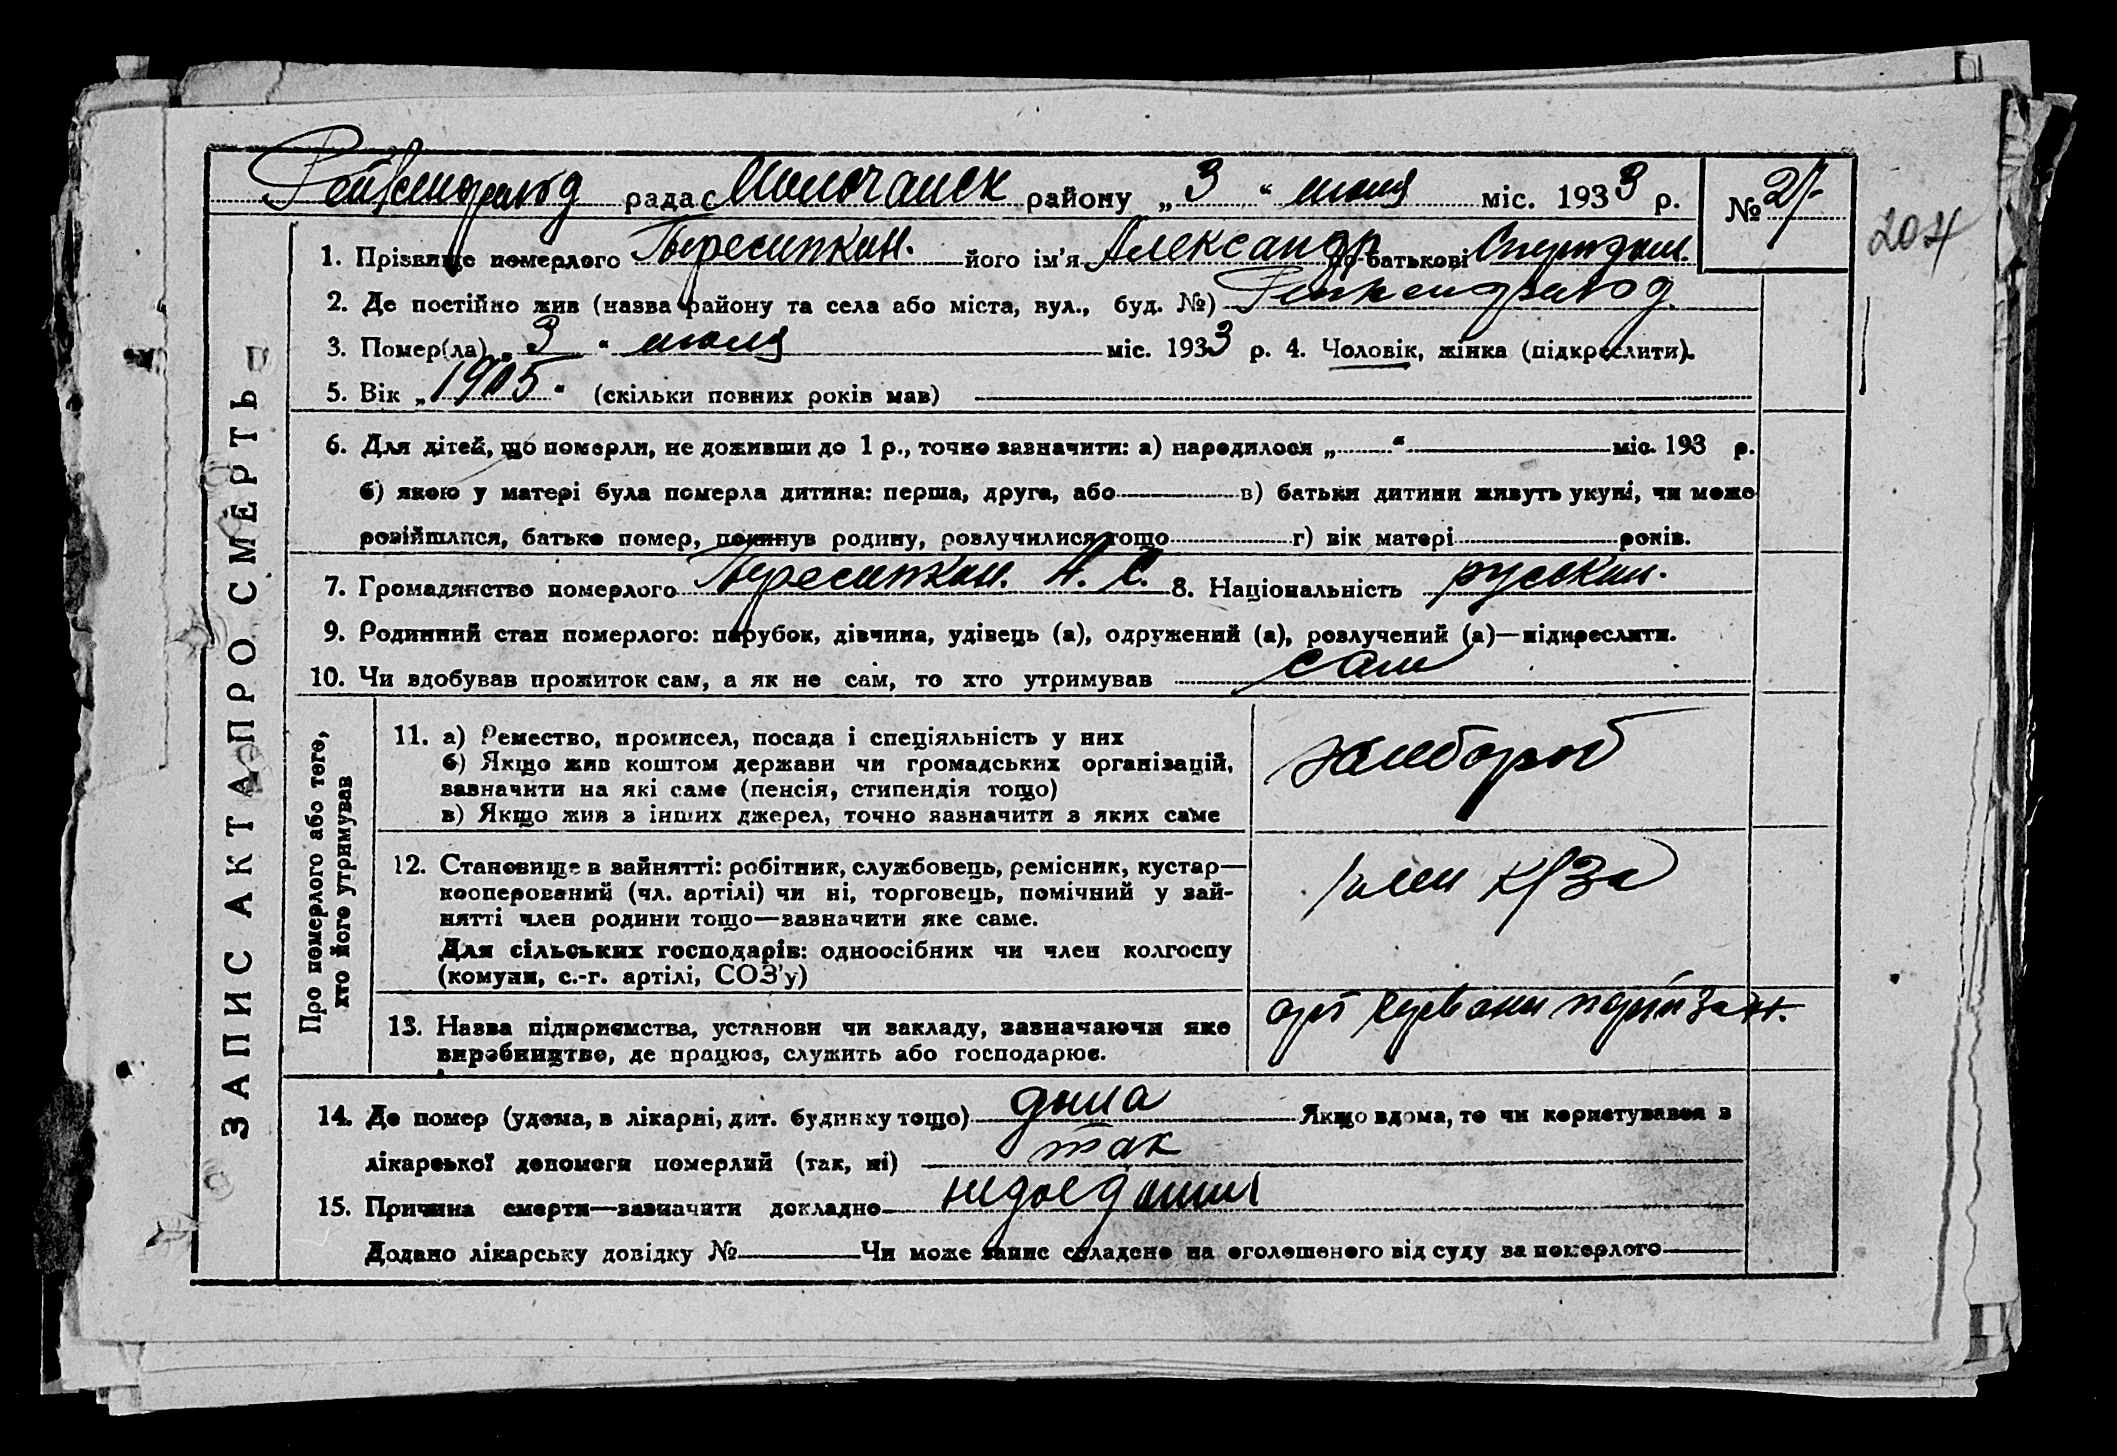 Рейкенфельд рада с Молочанск району „3“ июля міс. 1933 р. № 21
204
1. Прізвище померлого Пересипкин. його ім'я Александр по батькові Спиридон.
2. Де постійно жив (назва району та села або міста, вул., буд. №) Рейкенфельд.
3. Помер(ла) „3“ июля міс. 1933 р. 4. Чоловік, жінка (підкреслити).
5. Вік „1905“ (скільки повних років мав)
6. Для дітей, що померли, не доживши до 1 р., точно зазначити: а) народилося „ “ міс. 193 р.
б) якою у матері була померла дитина: перша, друга, або в) батьки дитини живуть укупі, чи може
розійшлися, батько помер, покинув родину, розлучилися тощо г) вік матері років.
7. Громадянство померлого Пересипкин. А. С. 8. Національність русский.
9. Родинний стан померлого: парубок, дівчина, удівець (а), одружений (а), розлучений (а)—підкреслити.
10. Чи здобував прожиток сам, а як не сам, то хто утримував сам
ЗАПИС АКТА ПРО СМЕРТЬ
Про померлого або того,
хто його утримував
11. а) Ремество, промисел, посада і спеціяльність у них
б) Якщо жив коштом держави чи громадських організацій,
зазначити на які саме (пенсія, стипендія тощо)
в) Якщо жив з інших джерел, точно зазначити з яких саме
хлебороб
12. Становище в зайнятті: робітник, службовець, ремісник, кустар—
кооперований (чл. артілі) чи ні, торговець, помічний у зай-
нятті член родини тощо—зазначити яке саме.
Для сільських господарів: одноосібник чи член колгоспу
(комуни, с.-г. артілі, СОЗ'у)
член к/за
13. Назва підприємства, установи чи закладу, зазначаючи яке
виробництво, де працює, служить або господарює.
арт Червони партизан.
14. Де помер (удома, в лікарні, дит. будинку тощо) дома Якщо вдома, то чи користувався з
лікарської допомоги померлий (так, ні) так
15. Причина смерти—зазначити докладно недоедания
Додано лікарську довідку № Чи може запис складено на оголошеного від суду за померлого